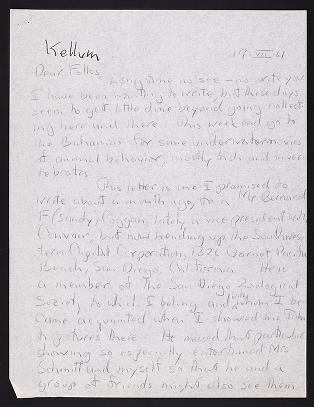 Kellum
19 VII 61
Dear Folks,
Long time no see – no write you
I have been wanting to write, but these days
seem to get little done beyond going collect
ing here and there. This weekend go to
the Bahamas for some underwater movies
of animal behavior, mostly fish and inver
tebrates
This letter is one I promised to
write about a month ago, to a Mr Bernard
F (Sandy) Coggan, lately a vice president with
Convair, but now heading up the Southwes-
tern Capital Corporation, 1326 Garnet Pacific
Beach, San Diego, California. He is
a member of the San Diego Zoological
Society to which I belong and whom I be
came acquainted when I showed
pictures there. He missed that particular
showing so especially entertained Mrs
Schmitt and myself so that he and a
group of friends might also see them